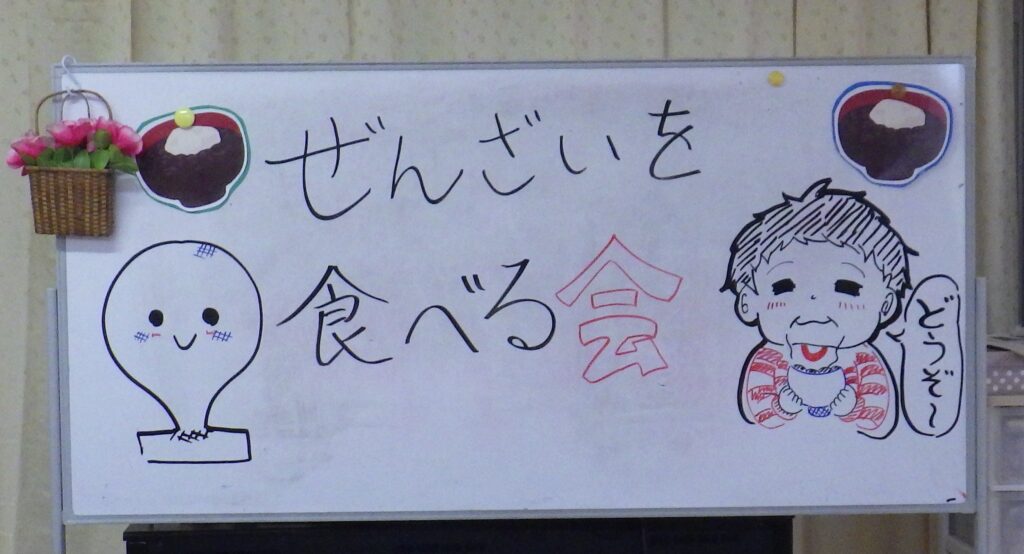 ぜんざいを
食べる会
どうぞ〜